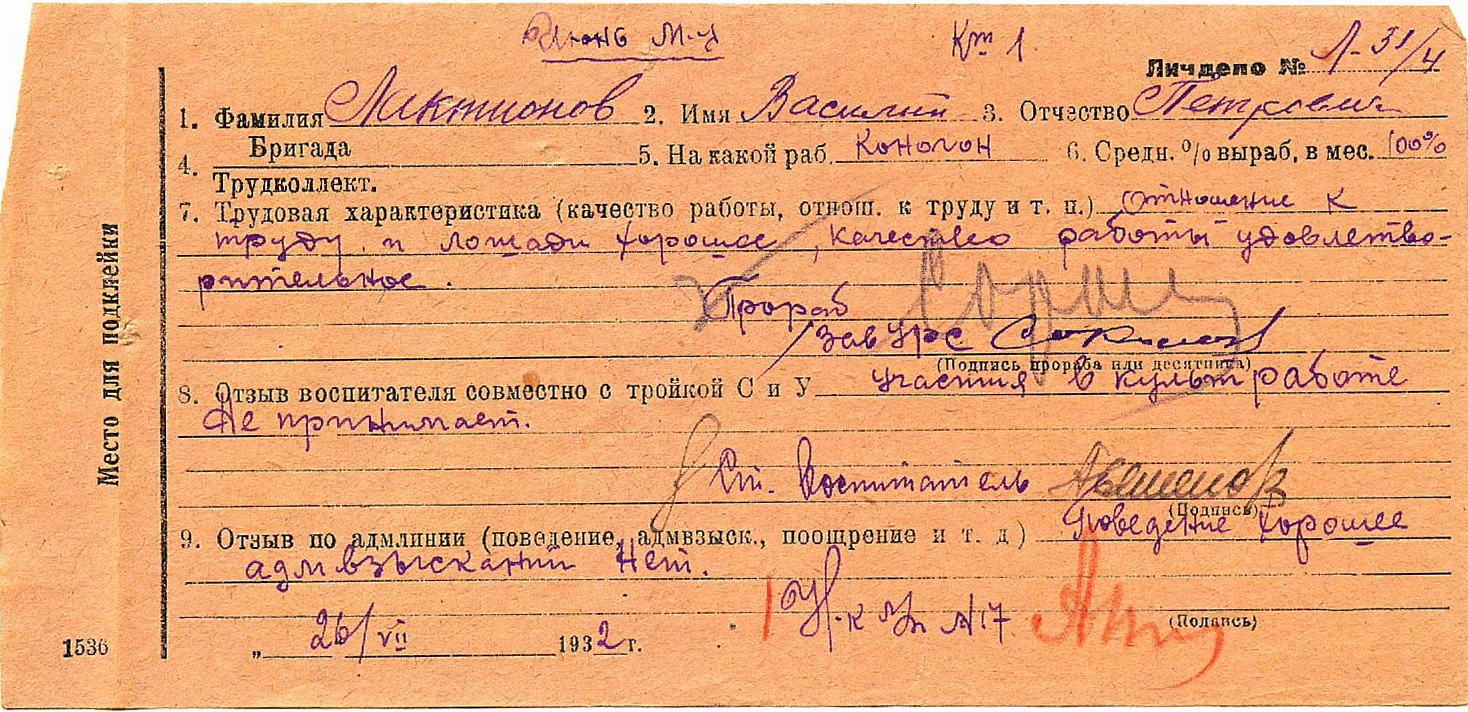 Июнь м-ц
Личдело № Л-31/4
1. Фамилия Лактионов 2. Имя Василий 3. Отчество Петрович
4. Бригада
Трудколлект.
5. На какой раб. Коногон 6. Средн. % выраб, в мес. 100%
7. Трудовая характеристика (качество работы, отнош. к труду и т. п.) Отношение к
труду и лошади хорошее, качество работы удовлетво-
рительное.
Прораб
Зав УРС
(Подпись прораба или десятника)
8. Отзыв воспитателя совместно с тройкой С и У участия в культработе
Не принимает.
Ст. Воспитатель
(Подпись)
9. Отзыв по адмлинии (поведение, адмвзыск., поощрение и т. д) Поведение хорошее
адмвзысканий нет.
Н-к №7
(Подпись)
„ 26/VII 1932 г.
Место для подклейки
1536